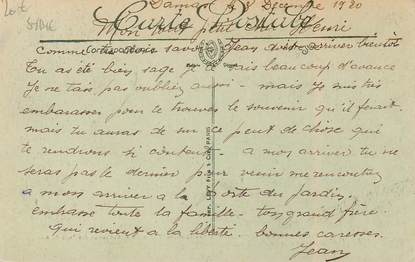 Damas 8 Décembre 1920
Carte Postale
Mon petit cher Henri
Correspondance
Comme tu dois savoir Jean doit arriver bientôt
Tu as été bien sage je sais beaucoup d'avance
Je ne t'ais pas oublié aussi - mais je suis très
embarasser pour te trouver le souvenir qu'il ferait.
mais tu auras de sur ce peut de chose qui
te rendrons si content - a mon arriver tu ne
seras pas le dernier pour venir me rencontrer
a mon arriver a la porte du jardin.
embrasse toute la famille - ton grand frère.
qui revient a la liberté. bonnes caresses.
Jean
LEVY Fils & Cie, PARIS